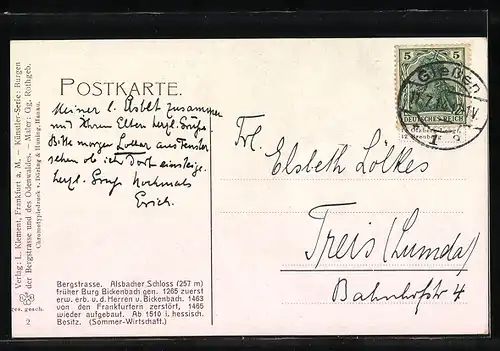 Verlag: L. Klement, Frankfurt a. M. — Künstler-Serie: Burgen
der Bergstrasse und des Odenwaldes. — Maler: Gg. Rothgeb.
Chromotypiedruck v. Döring & Huning, Hanau.
ges. gesch.
2
POSTKARTE.
Meiner l. zusammen
mit Ihren Eltern herzl. Grüße
Bitte morgen Lollar aus Fenster
sehen ob ich dort einsteige.
Herzl. Gruß Nochmals
Erich.
Bergstrasse. Alsbacher Schloss (257 m)
früher Burg Bickenbach gen. 1265 zuerst
erw. erb. v. d. Herren v. Bickenbach. 1463
von den Frankfurtern zerstört, 1465
wieder aufgebaut. Ab 1510 i. hessisch.
Besitz. (Sommer-Wirtschaft.)
5 5
DEUTSCHES REICH
Gießen
Frl.
Elsbeth Lölkes
Treis (Lumda)
Bahnhofstr 4